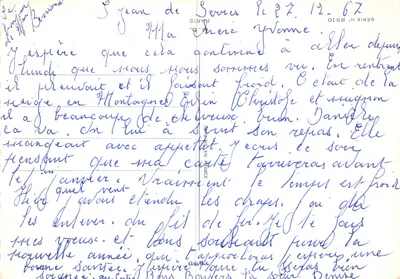 St jean de Serres le 27. 12. 67
Ma chère Yvonne.
J'espère que cela continue à aller depuis
lundi que nous nous sommes vu. En rentrant
il pleuvait et il faisait froid. C'était de la
neige en Montagne. Christofe et mignon
il a beaucoup de cheveux brun. Danièle
ça va. On lui a servit son repas. Elle
mangeait avec appétit. J'écris ce soir
pensant que ma carte t'arrivera avant
le 1er janvier. Vraiment le temps est froid
quel vent
Hier j'avais étendu les draps, j'ai dû
les enlever du fil de fer. Je te fais
mes voeux et bons souhaits pour la
nouvelle année que t'apportera j'espère une
bonne santé. J'espère que tu seras bien
soignée. Bons Baisers ta soeur Denise